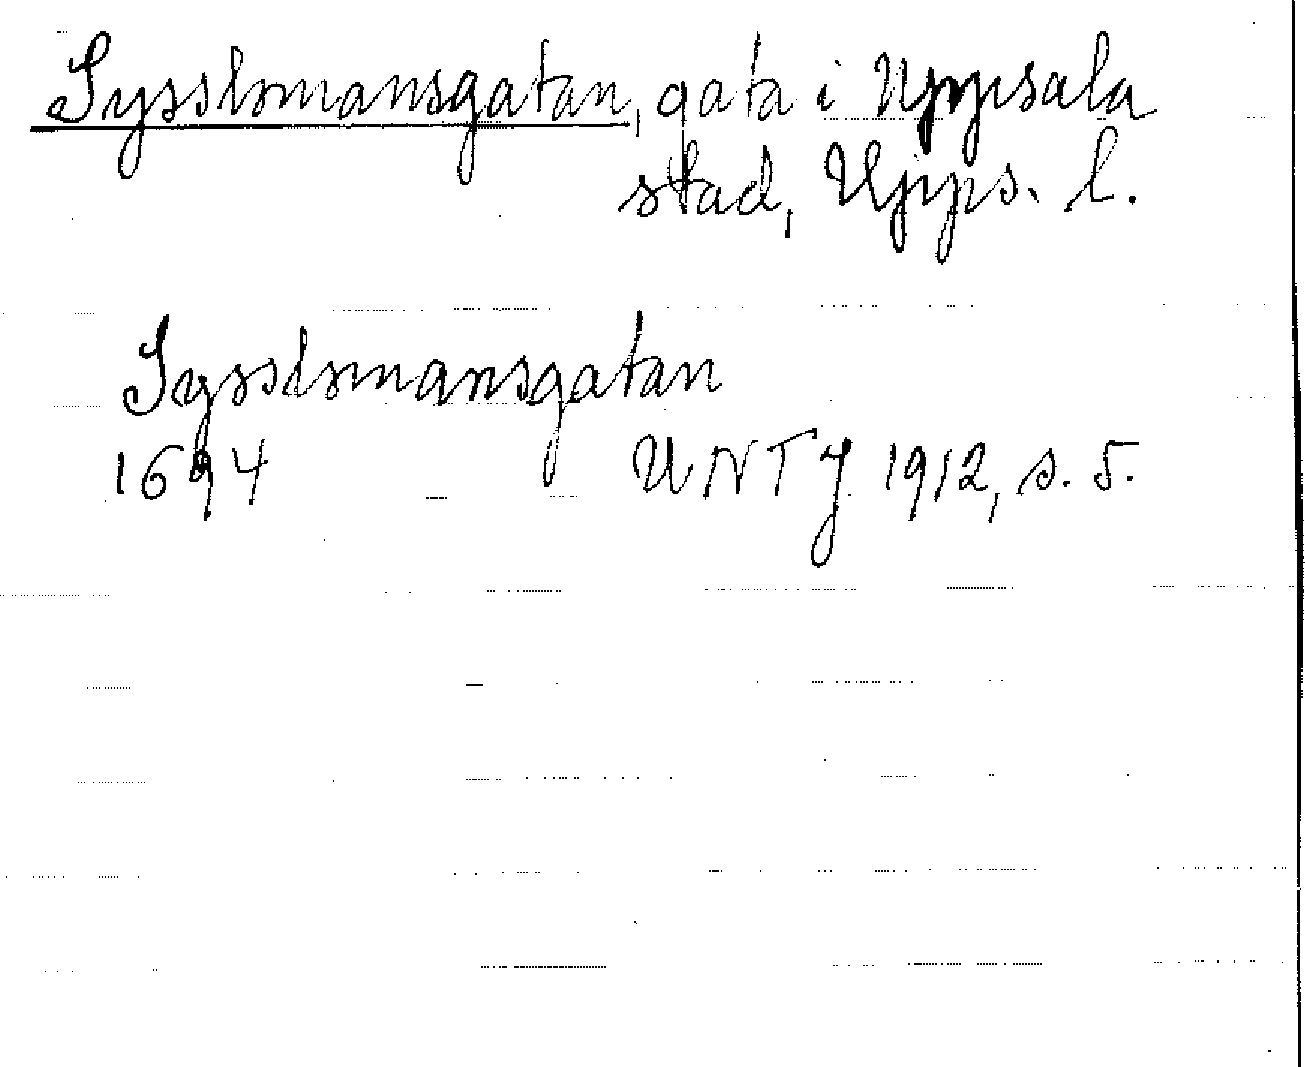 Sysslomansgatan, gata i Uppsala
stad, Upps. l.
Sysslomansgatan
1694 UNTJ 1912, s. 5.